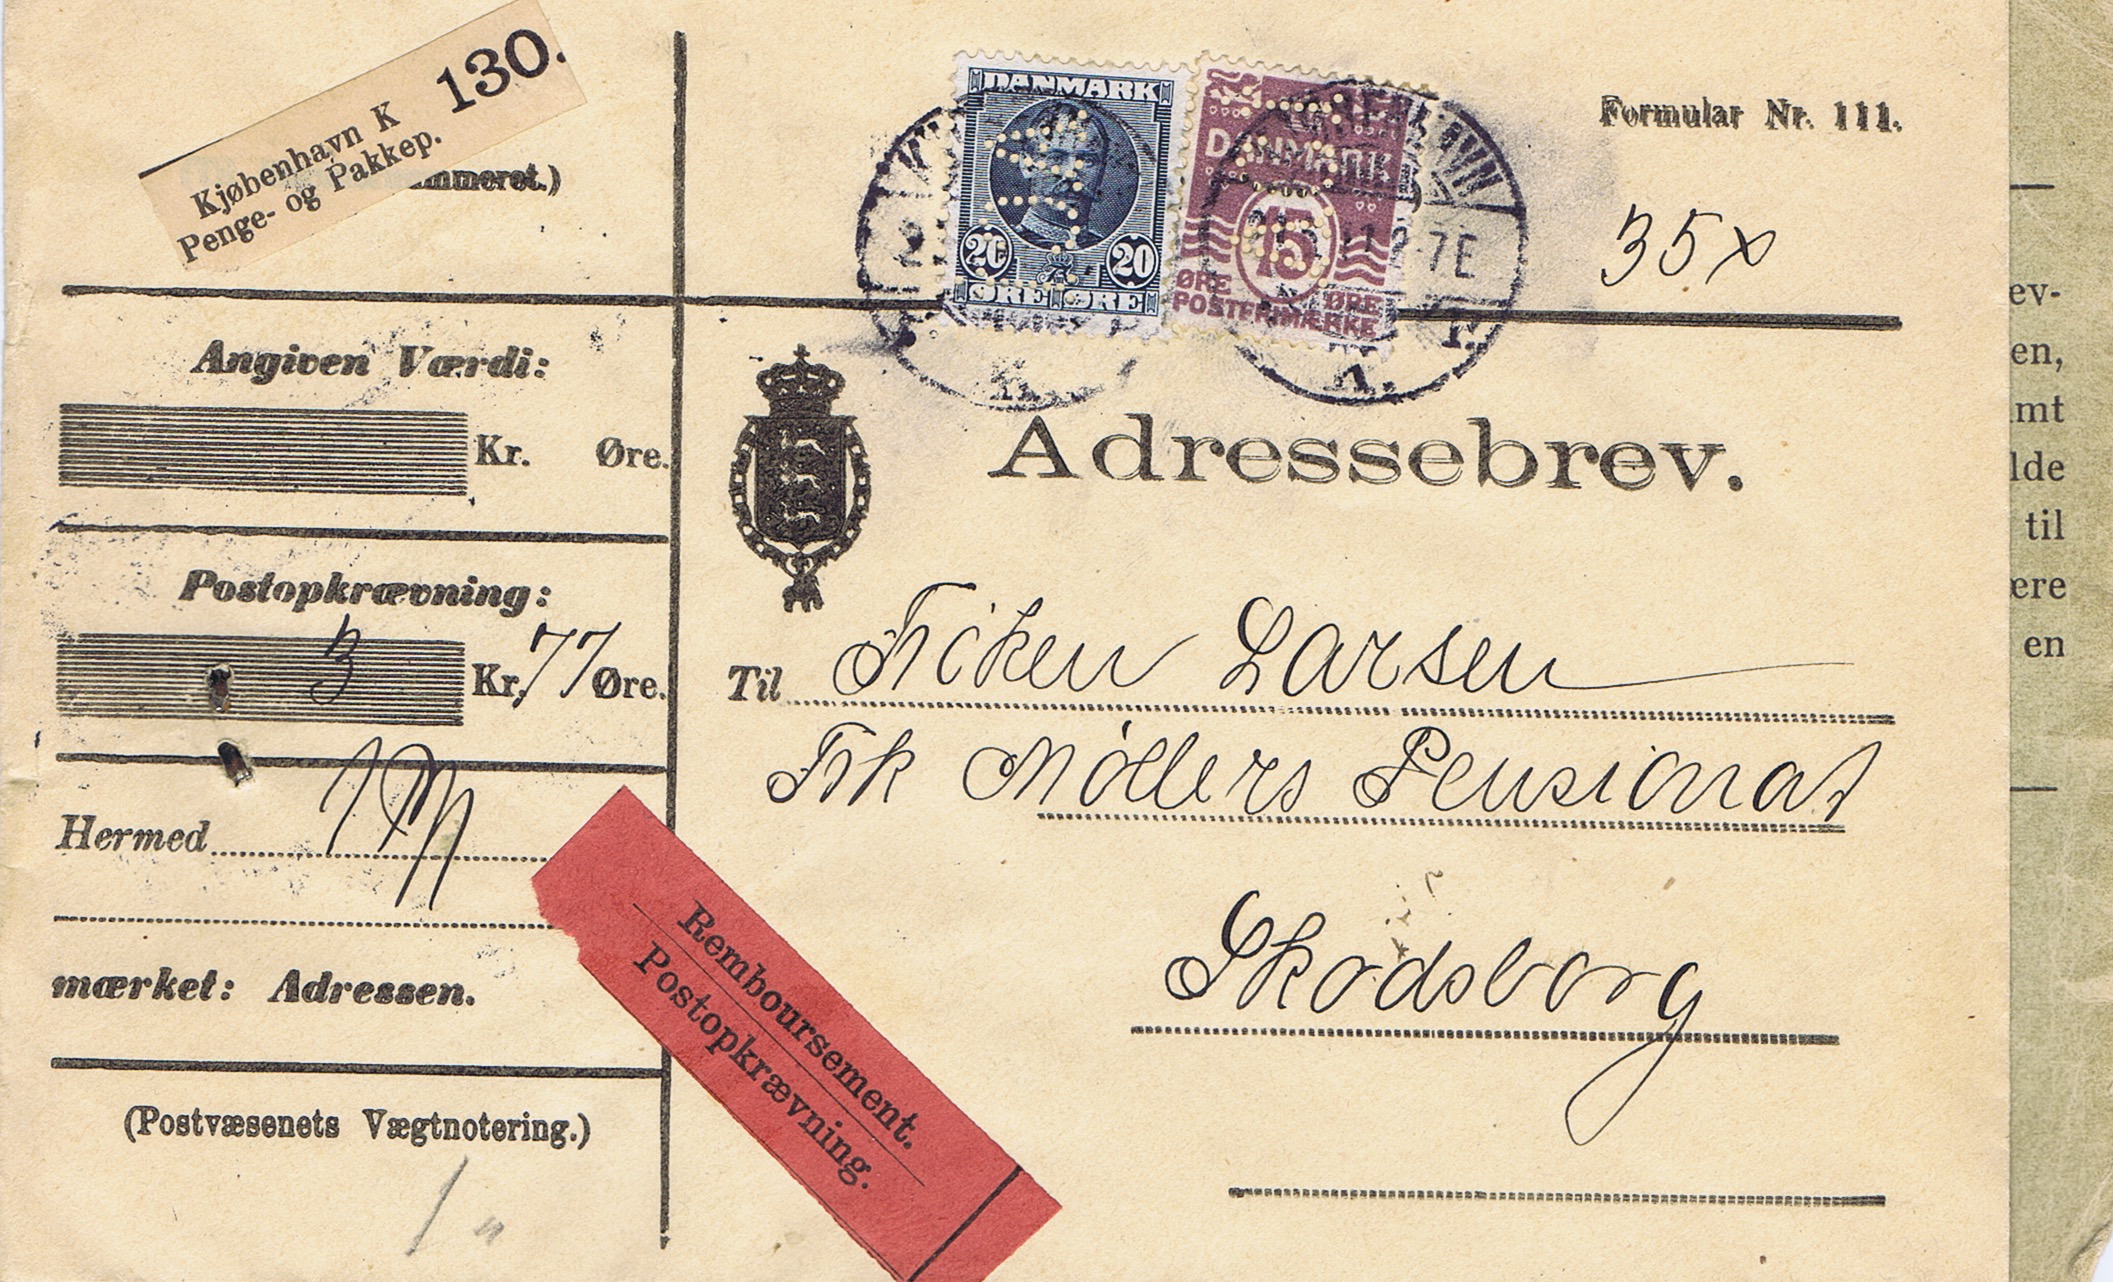 Kjøbenhavn K
Penge- og Pakkep.
130.
mmeret.)
DANMARK
20 20
ØRE ØRE
DANMARK
15
ØRE ØRE
POSTFRIMÆRKE
7E
K.
Formular Nr. 111.
35
Angiven Værdi:
Kr. Øre.
Postopkrævning:
3 Kr. 77 Øre.
Hermed
mærket: Adressen.
(Postvæsenets Vægtnotering.)
1
Adressebrev.
Til Frøken Larsen
Frk Möllers Pensionat
Skodsborg
Remboursement.
Postopkrævning.
ev-
en,
mt
lde
til
ere
en